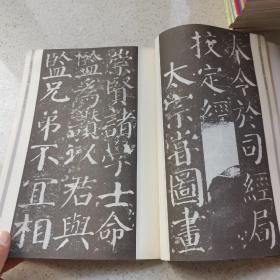 奉令於司經局
校定經
太宗嘗圖畫
崇賢諸學士命
監為讚以君與
監兄弟不宜相